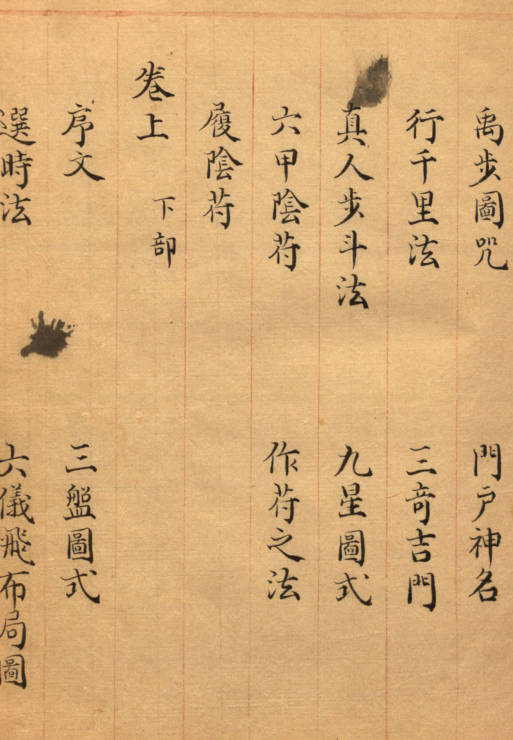 禹步圖咒 門戶神名
行千里法 三奇吉門
真人步斗法 九星圖式
六甲陰苻 作苻之法
履陰苻
卷上 下部
序文 三盤圖式
選時法 六儀飛布局圖